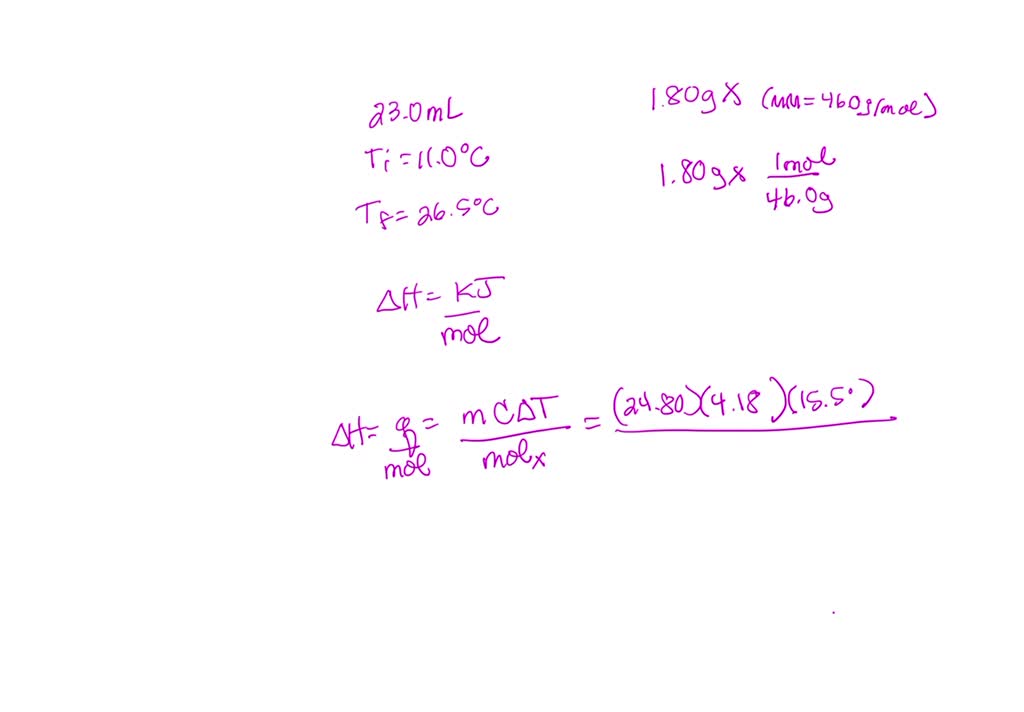 23.0mL
Ti = 11.0°C
Tf = 26.5°C
1.80g X (MM = 46.0g/mol)
1.80g x 1mol
46.0g
ΔH = KJ
mol
ΔH = q = mCΔT = (24.80)(4.18)(15.5°)
mol molx